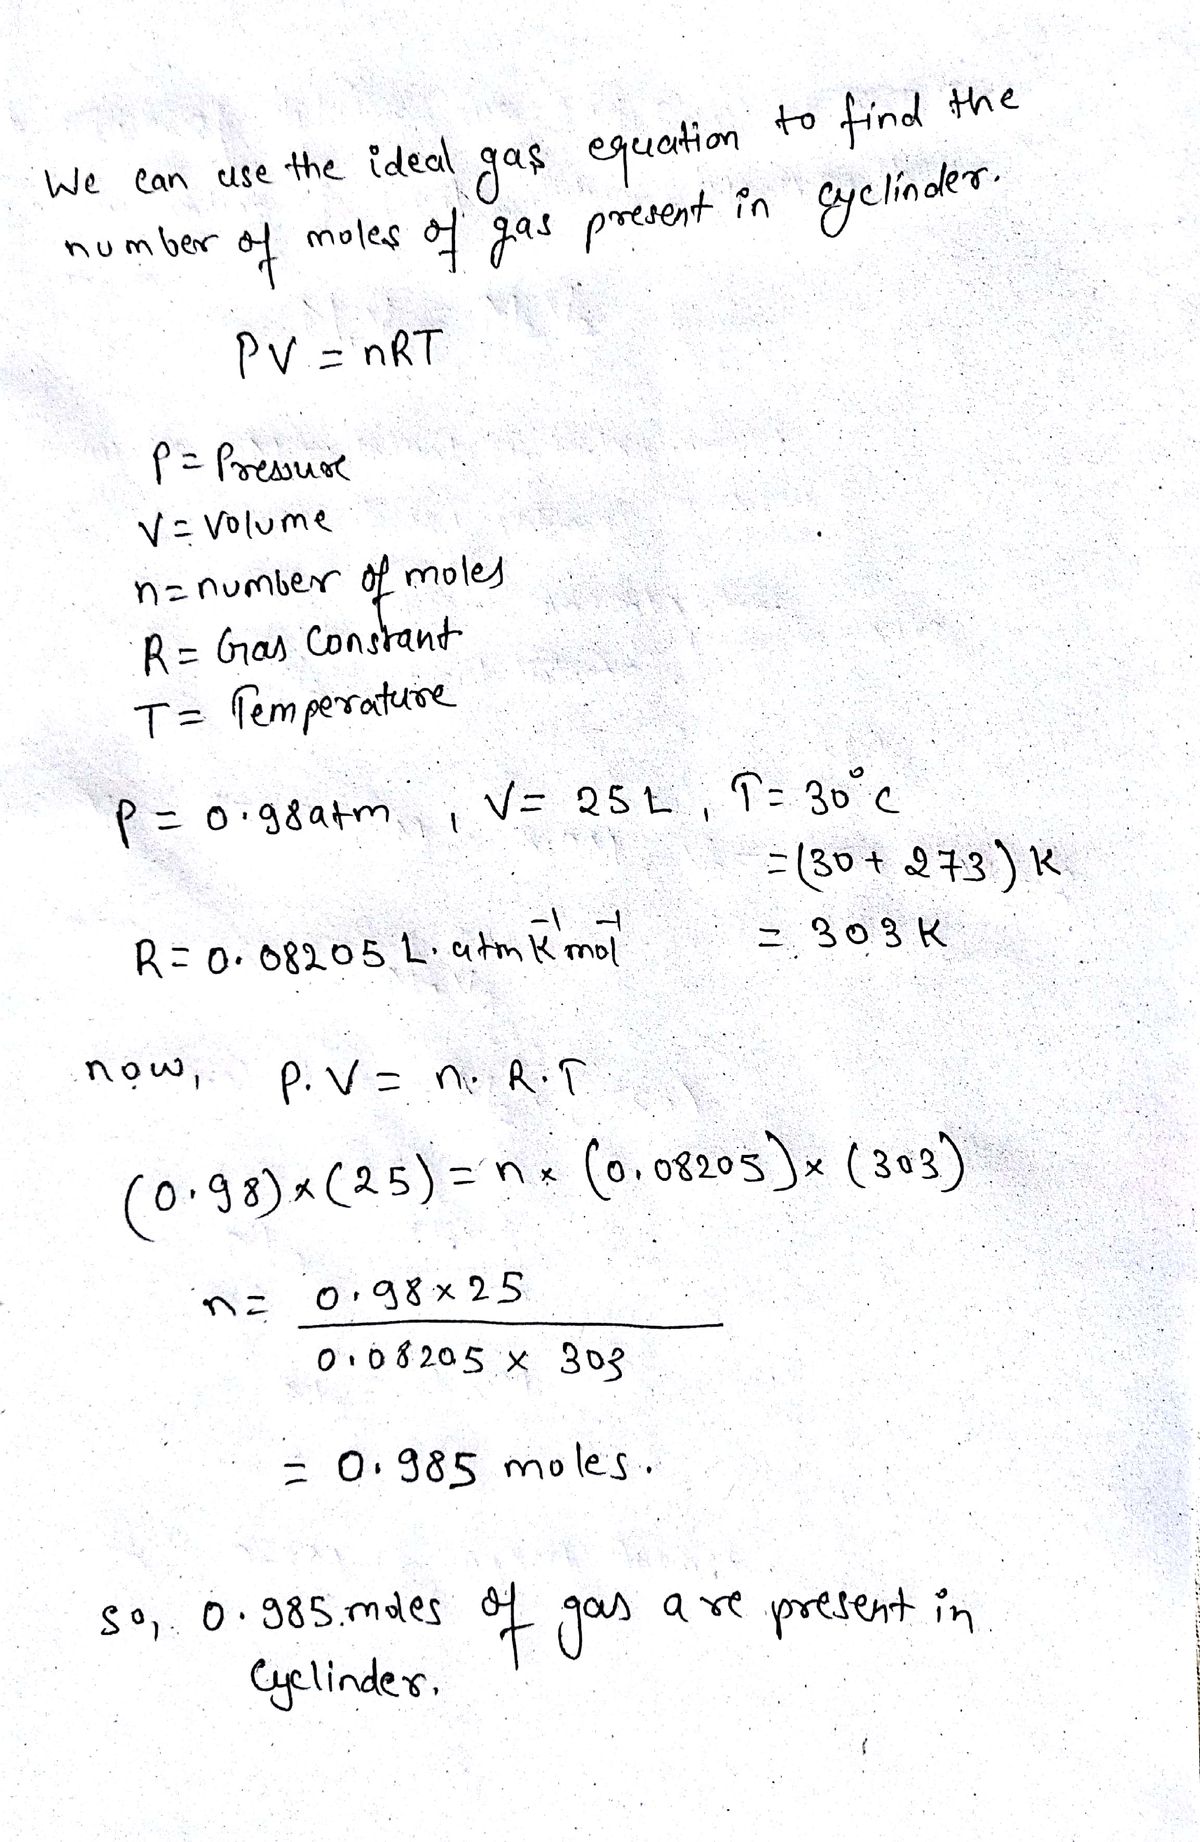 We can use the ideal gas equation to find the
number of moles of gas present in cyclinder.
PV = nRT
P = Pressure
V = Volume
n = number of moles
R = Gas Constant
T = Temperature
P = 0.98atm , V = 25 L , T = 30°C
= (30 + 273) K
R = 0.08205 L. atm K⁻¹ mol⁻¹ = 303 K
now, P. V = n. R. T
(0.98) × (25) = n × (0.08205) × (303)
n = 0.98 × 25
0.08205 × 303
= 0.985 moles.
so, 0.985 moles of gas are present in
Cyclinder.